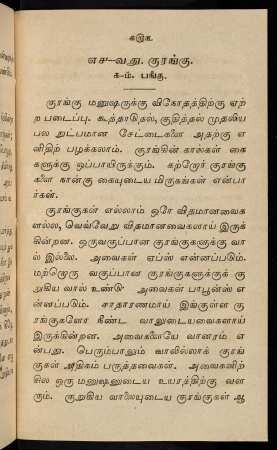 கடுக.
எச-வது. குரங்கு.
க-ம். பங்கு.
குரங்கு மனுஷருக்கு விநோதத்திற்கு ஏற்
ற படைப்பு. கூத்தாடுதல், குதித்தல் முதலிய
பல நுட்பமான சேட்டைகளை அதற்கு எ
ளிதிற் பழக்கலாம். குரங்கின் கால்கள் கை
களுக்கு ஒப்பாயிருக்கும். கற்றோர் குரங்கு
களை நான்கு கையுடைய மிருகங்கள் என்பா
ர்கள்.
குரங்குகள் எல்லாம் ஒரே விதமானவைக
ளல்ல, வெவ்வேறு விதமானவைகளாய் இருக்
கின்றன. ஒருவகுப்பான குரங்குகளுக்கு வா
ல் இல்லை. அவைகள் ஏப்ஸ் என்னப்படும்.
மற்றொரு வகுப்பான குரங்குகளுக்குக் கு
றுகிய வால் உண்டு அவைகள் பாபூன்ஸ் எ
ன்னப்படும். சாதாரணமாய் இங்குள்ள கு
ரங்குகளோ நீண்ட வாலுடையவைகளாய்
இருக்கின்றன. அவைகளையே வானரம் எ
ன்பது. பெரும்பாலும் வாலில்லாக் குரங்
குகள் அதிகம் பருத்தவைகள். அவைகளிற்
சில ஒரு மனுஷனுடைய உயரத்திற்கு வள
ரும். குறுகிய வாலையுடைய குரங்குகள் ஆ